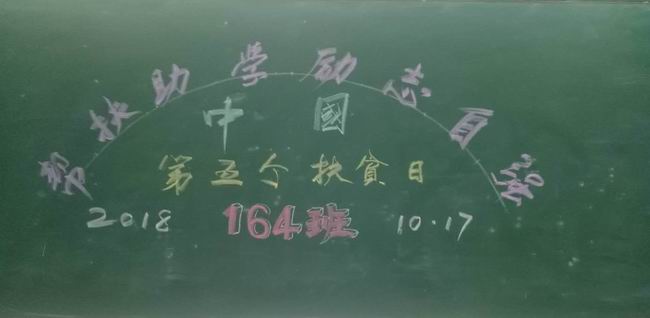 扶助学励志自强
中國
第五个扶貧日
2018 164班 10·17